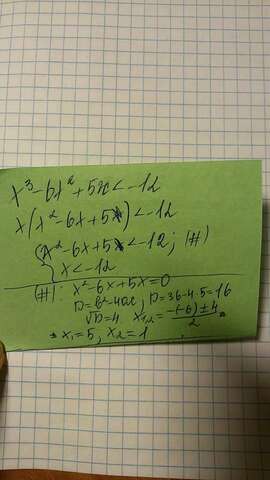 x³-6x²+5x<-12
x(x²-6x+5)<-12
{x²-6x+5<-12; (#)
x<-12
(#): x²-6x+5x=0
D=b²-4ac; D=36-4·5=16
√D=4 x₁,₂=(-(-6)±4)/2 =
x₁=5, x₂=1